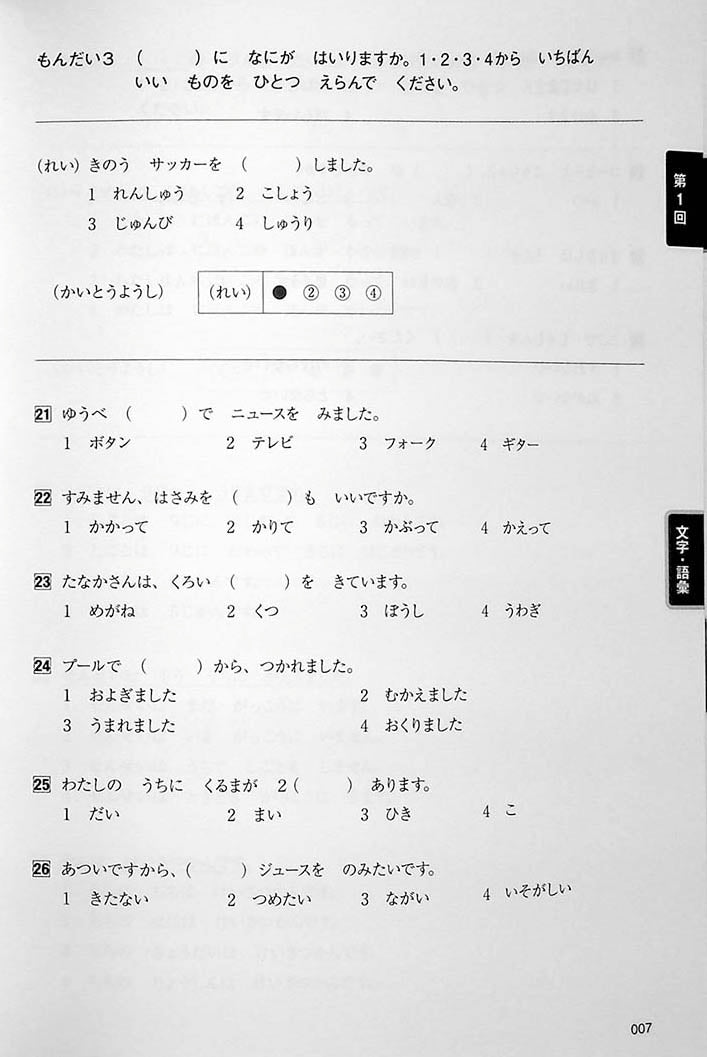 もんだい3 (　　　)に なにが はいりますか。1・2・3・4から いちばん
いい ものを ひとつ えらんで ください。
(れい) きのう サッカーを (　　　)しました。
1 れんしゅう 2 こしょう
3 じゅんび 4 しゅうり
(かいとうようし) (れい) ● ② ③ ④
21 ゆうべ (　　　)で ニュースを みました。
1 ボタン 2 テレビ 3 フォーク 4 ギター
22 すみません、はさみを (　　　)も いいですか。
1 かかって 2 かりて 3 かぶって 4 かえって
23 たなかさんは、くろい (　　　)を きています。
1 めがね 2 くつ 3 ぼうし 4 うわぎ
24 プールで (　　　)から、つかれました。
1 およぎました 2 むかえました
3 うまれました 4 おくりました
25 わたしの うちに くるまが 2(　　　) あります。
1 だい 2 まい 3 ひき 4 こ
26 あついですから、(　　　)ジュースを のみたいです。
1 きたない 2 つめたい 3 ながい 4 いそがしい
第1回
文字・語彙
007